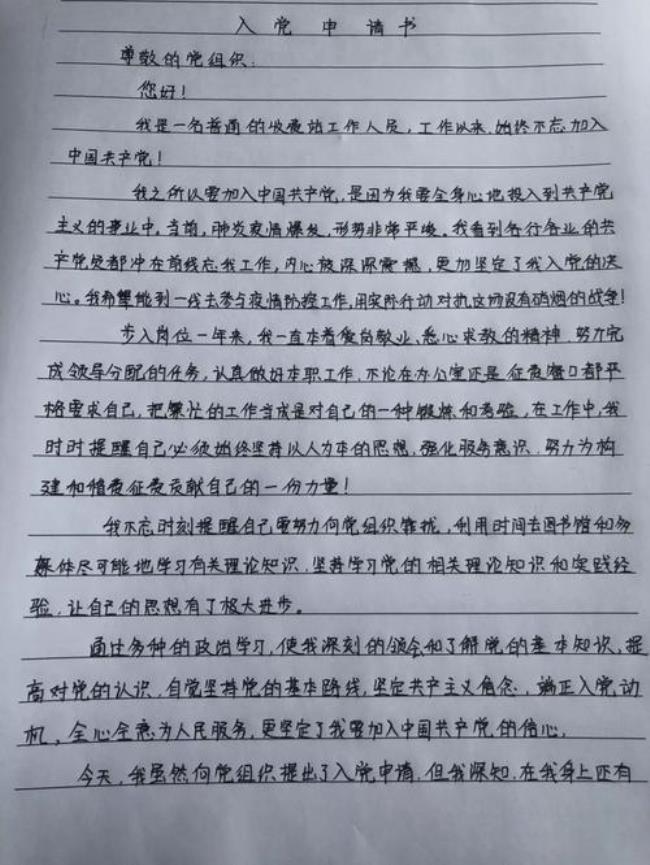 入党申请书
尊敬的党组织:
您好!
我是一名普通的收费站工作人员,工作以来,始终不忘加入
中国共产党!
我之所以要加入中国共产党,是因为我要全身心地投入到共产党
主义的事业中。当前,肺炎疫情爆发,形势非常严峻。我看到各行各业的共
产党员都冲在前线忘我工作,内心被深深震撼,更加坚定了我入党的决
心。我希望能到一线去参与疫情防控工作,用实际行动对抗这场没有硝烟的战争!
步入岗位一年来,我一直本着爱岗敬业、悉心求教的精神,努力完
成领导分配的任务,认真做好本职工作,不论在办公室还是征费窗口都严
格要求自己,把繁忙的工作当成是对自己的一种锻炼和考验,在工作中,我
时时提醒自己必须始终坚持以人为本的思想,强化服务意识,努力为构
建和稽费征费贡献自己的一份力量!
我不忘时刻提醒自己要努力向党组织靠拢,利用时间去图书馆和多
媒体尽可能地学习有关理论知识,坚持学习党的相关理论知识和实践经
验,让自己的思想有了极大进步。
通过多种的政治学习,使我深刻的领会和了解党的基本知识,提
高对党的认识,自觉坚持党的基本路线,坚定共产主义信念,端正入党动
机,全心全意为人民服务,更坚定了我要加入中国共产党的信心。
今天,我虽然向党组织提出了入党申请,但我深知,在我身上还有